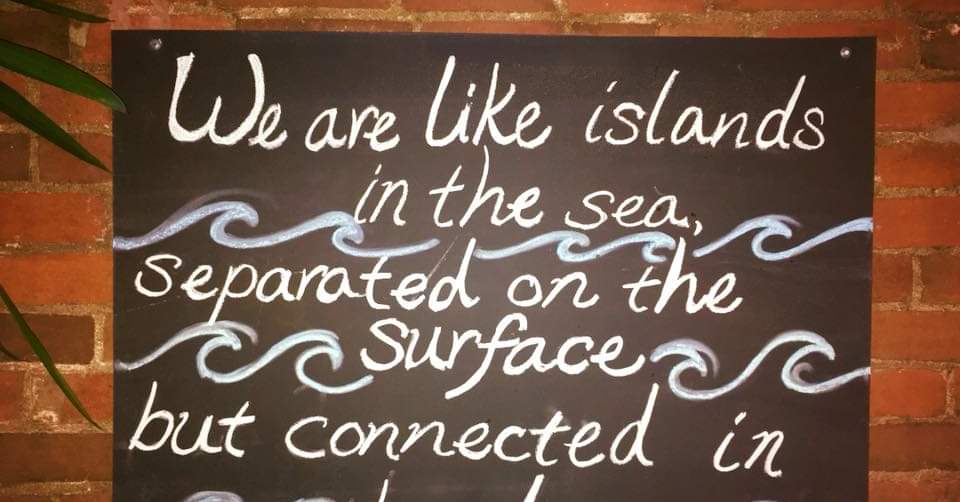 We are like islands
in the sea,
separated on the
surface
but connected in